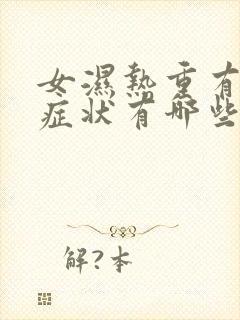 女濕熱重有
症状有哪些
解?本